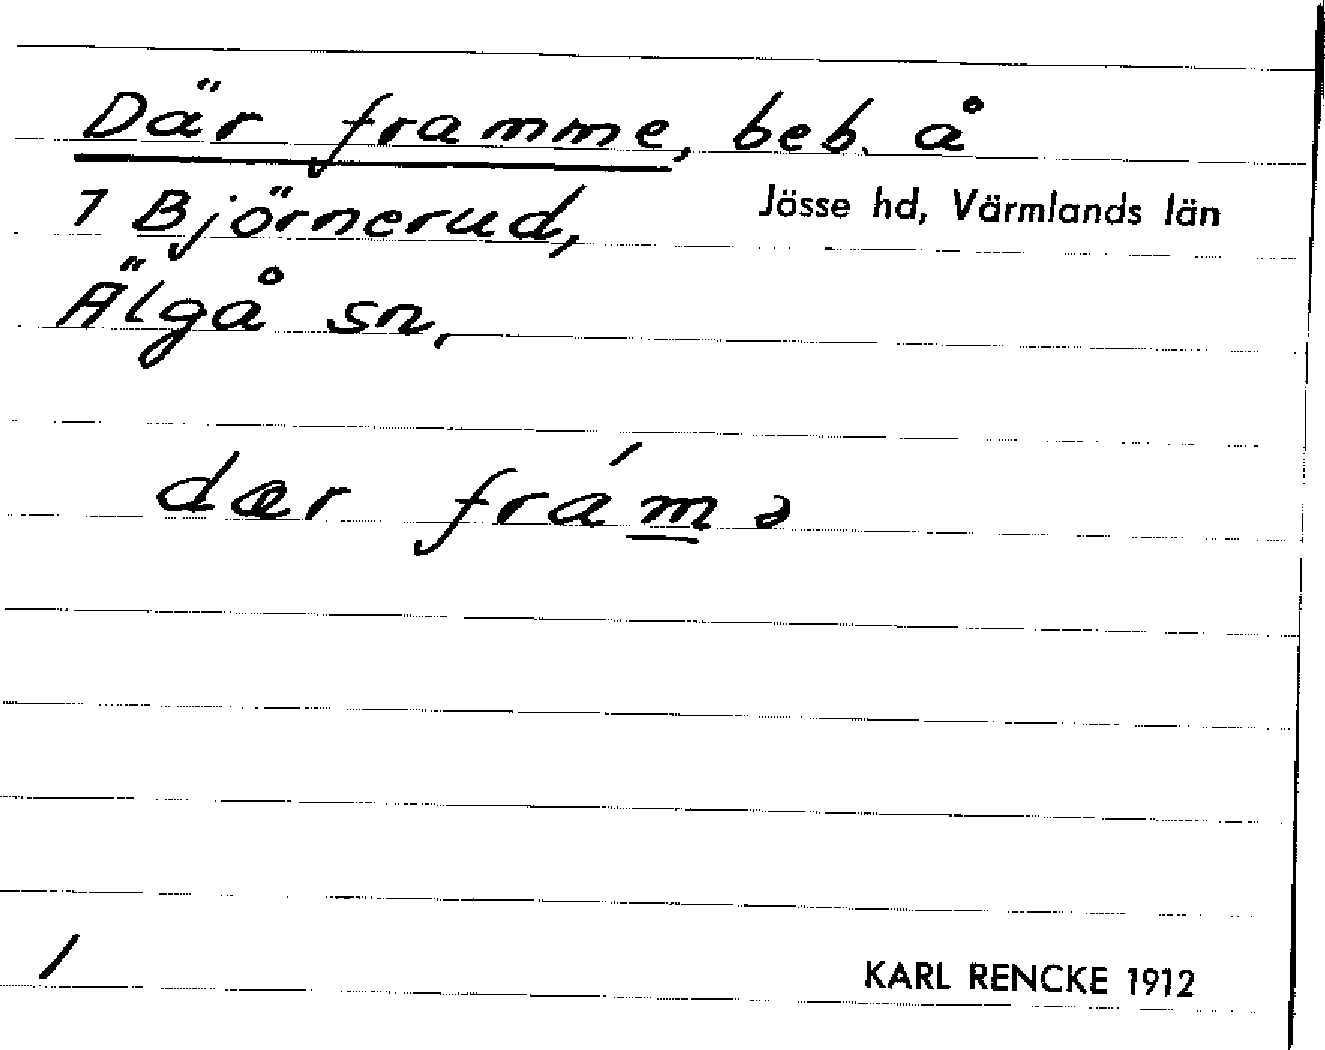 Där framme, beb. å
7 Björnerud,
Jösse hd, Värmlands län
Älgå sn,
dær fram´ə
/
KARL RENCKE 1912